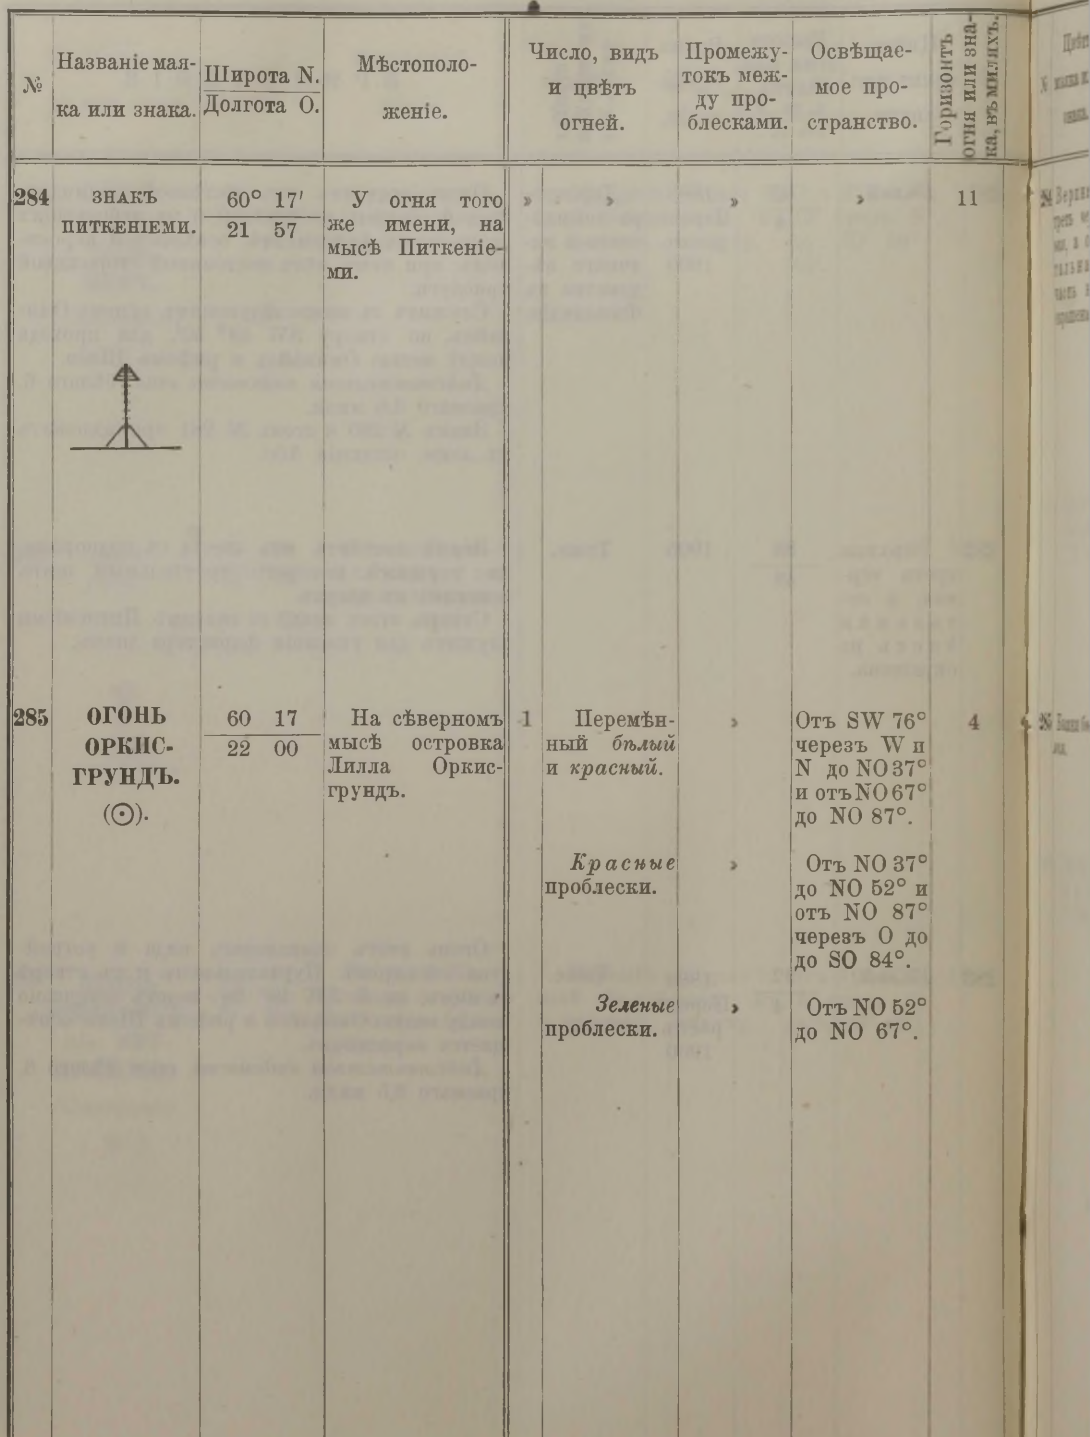 №
Названіе мая-
ка или знака.
Широта N.
Долгота O.
Мѣстополо-
женіе.
Число, видъ
и цвѣтъ
огней.
Промежу-
токъ меж-
ду про-
блесками.
Освѣщае-
мое про-
странство.
Горизонтъ
огня или зна-
ка, въ миляхъ.
284
ЗНАКЪ
ПИТКЕНІЕМИ.
60° 17'
21 57
У огня того
же имени, на
мысѣ Питкеніе-
ми.
» » » »
11
285
ОГОНЬ
ОРКИС-
ГРУНДЪ.
(☉).
60 17
22 00
На сѣверномъ
мысѣ островка
Лилла Оркис-
грундъ.
1
Перемѣн-
ный бѣлый
и красный.
»
Отъ SW 76°
черезъ W и
N до NO 37°
и отъ NO 67°
до NO 87°.
4
Красные
проблески.
»
Отъ NO 37°
до NO 52° и
отъ NO 87°
черезъ O до
до SO 84°.
Зеленые
проблески.
»
Отъ NO 52°
до NO 67°.